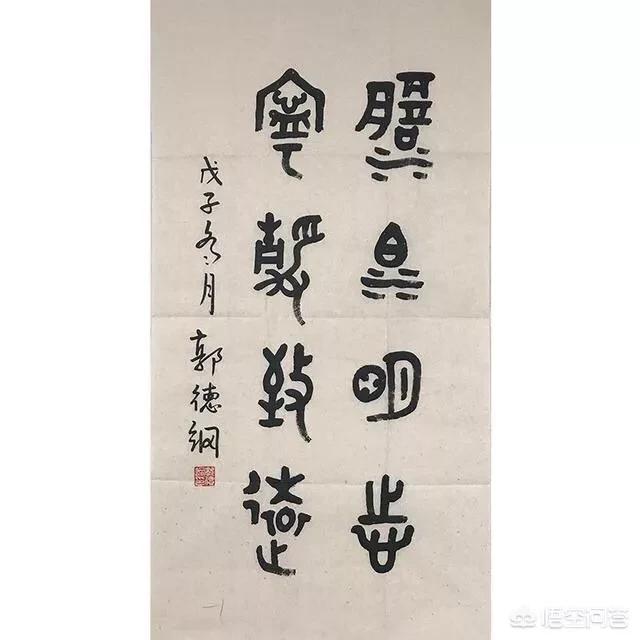 澹泊明志
寧靜致遠
戊子冬月 郭德纲
悟空问答